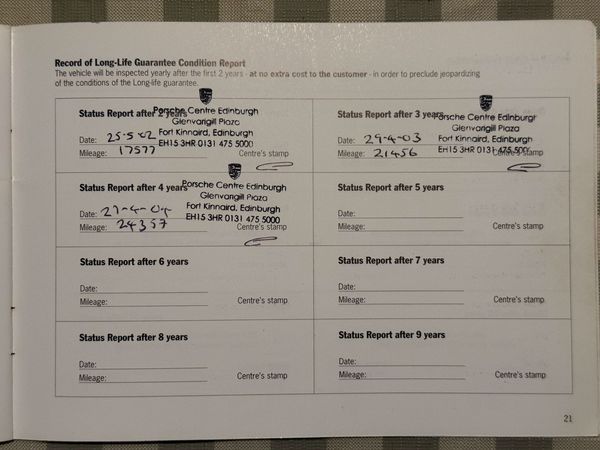 Record of Long-Life Guarantee Condition Report
The vehicle will be inspected yearly after the first 2 years - at no extra cost to the customer - in order to preclude jeopardizing
of the conditions of the Long-life guarantee.
Status Report after 2 years
Porsche Centre Edinburgh
Glenvarigill Plaza
Fort Kinnaird, Edinburgh
EH15 3HR 0131 475 5000
Date: 25-5-02
Mileage: 17577
Centre's stamp
Status Report after 3 years
Porsche Centre Edinburgh
Glenvarigill Plaza
Fort Kinnaird, Edinburgh
EH15 3HR 0131 475 5000
Date: 29-4-03
Mileage: 21456
Centre's stamp
Status Report after 4 years
Porsche Centre Edinburgh
Glenvarigill Plaza
Fort Kinnaird, Edinburgh
EH15 3HR 0131 475 5000
Date: 27-4-04
Mileage: 24357
Centre's stamp
Status Report after 5 years
Date:
Mileage:
Centre's stamp
Status Report after 6 years
Date:
Mileage:
Centre's stamp
Status Report after 7 years
Date:
Mileage:
Centre's stamp
Status Report after 8 years
Date:
Mileage:
Centre's stamp
Status Report after 9 years
Date:
Mileage:
Centre's stamp
21